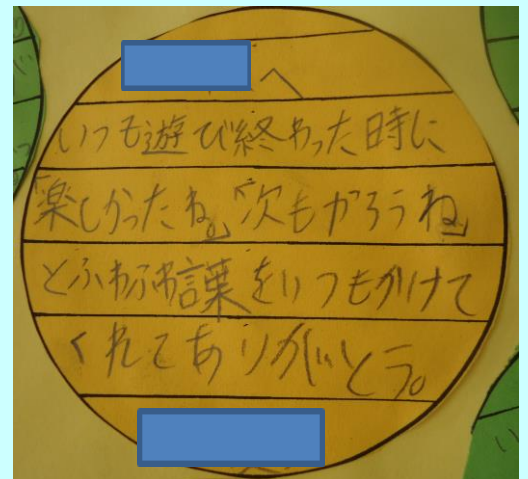 へ
いつも遊び終わった時に
「楽しかったね。」「次もがろうね」
とふわふわ言葉をいつもかけて
くれてありがとう。